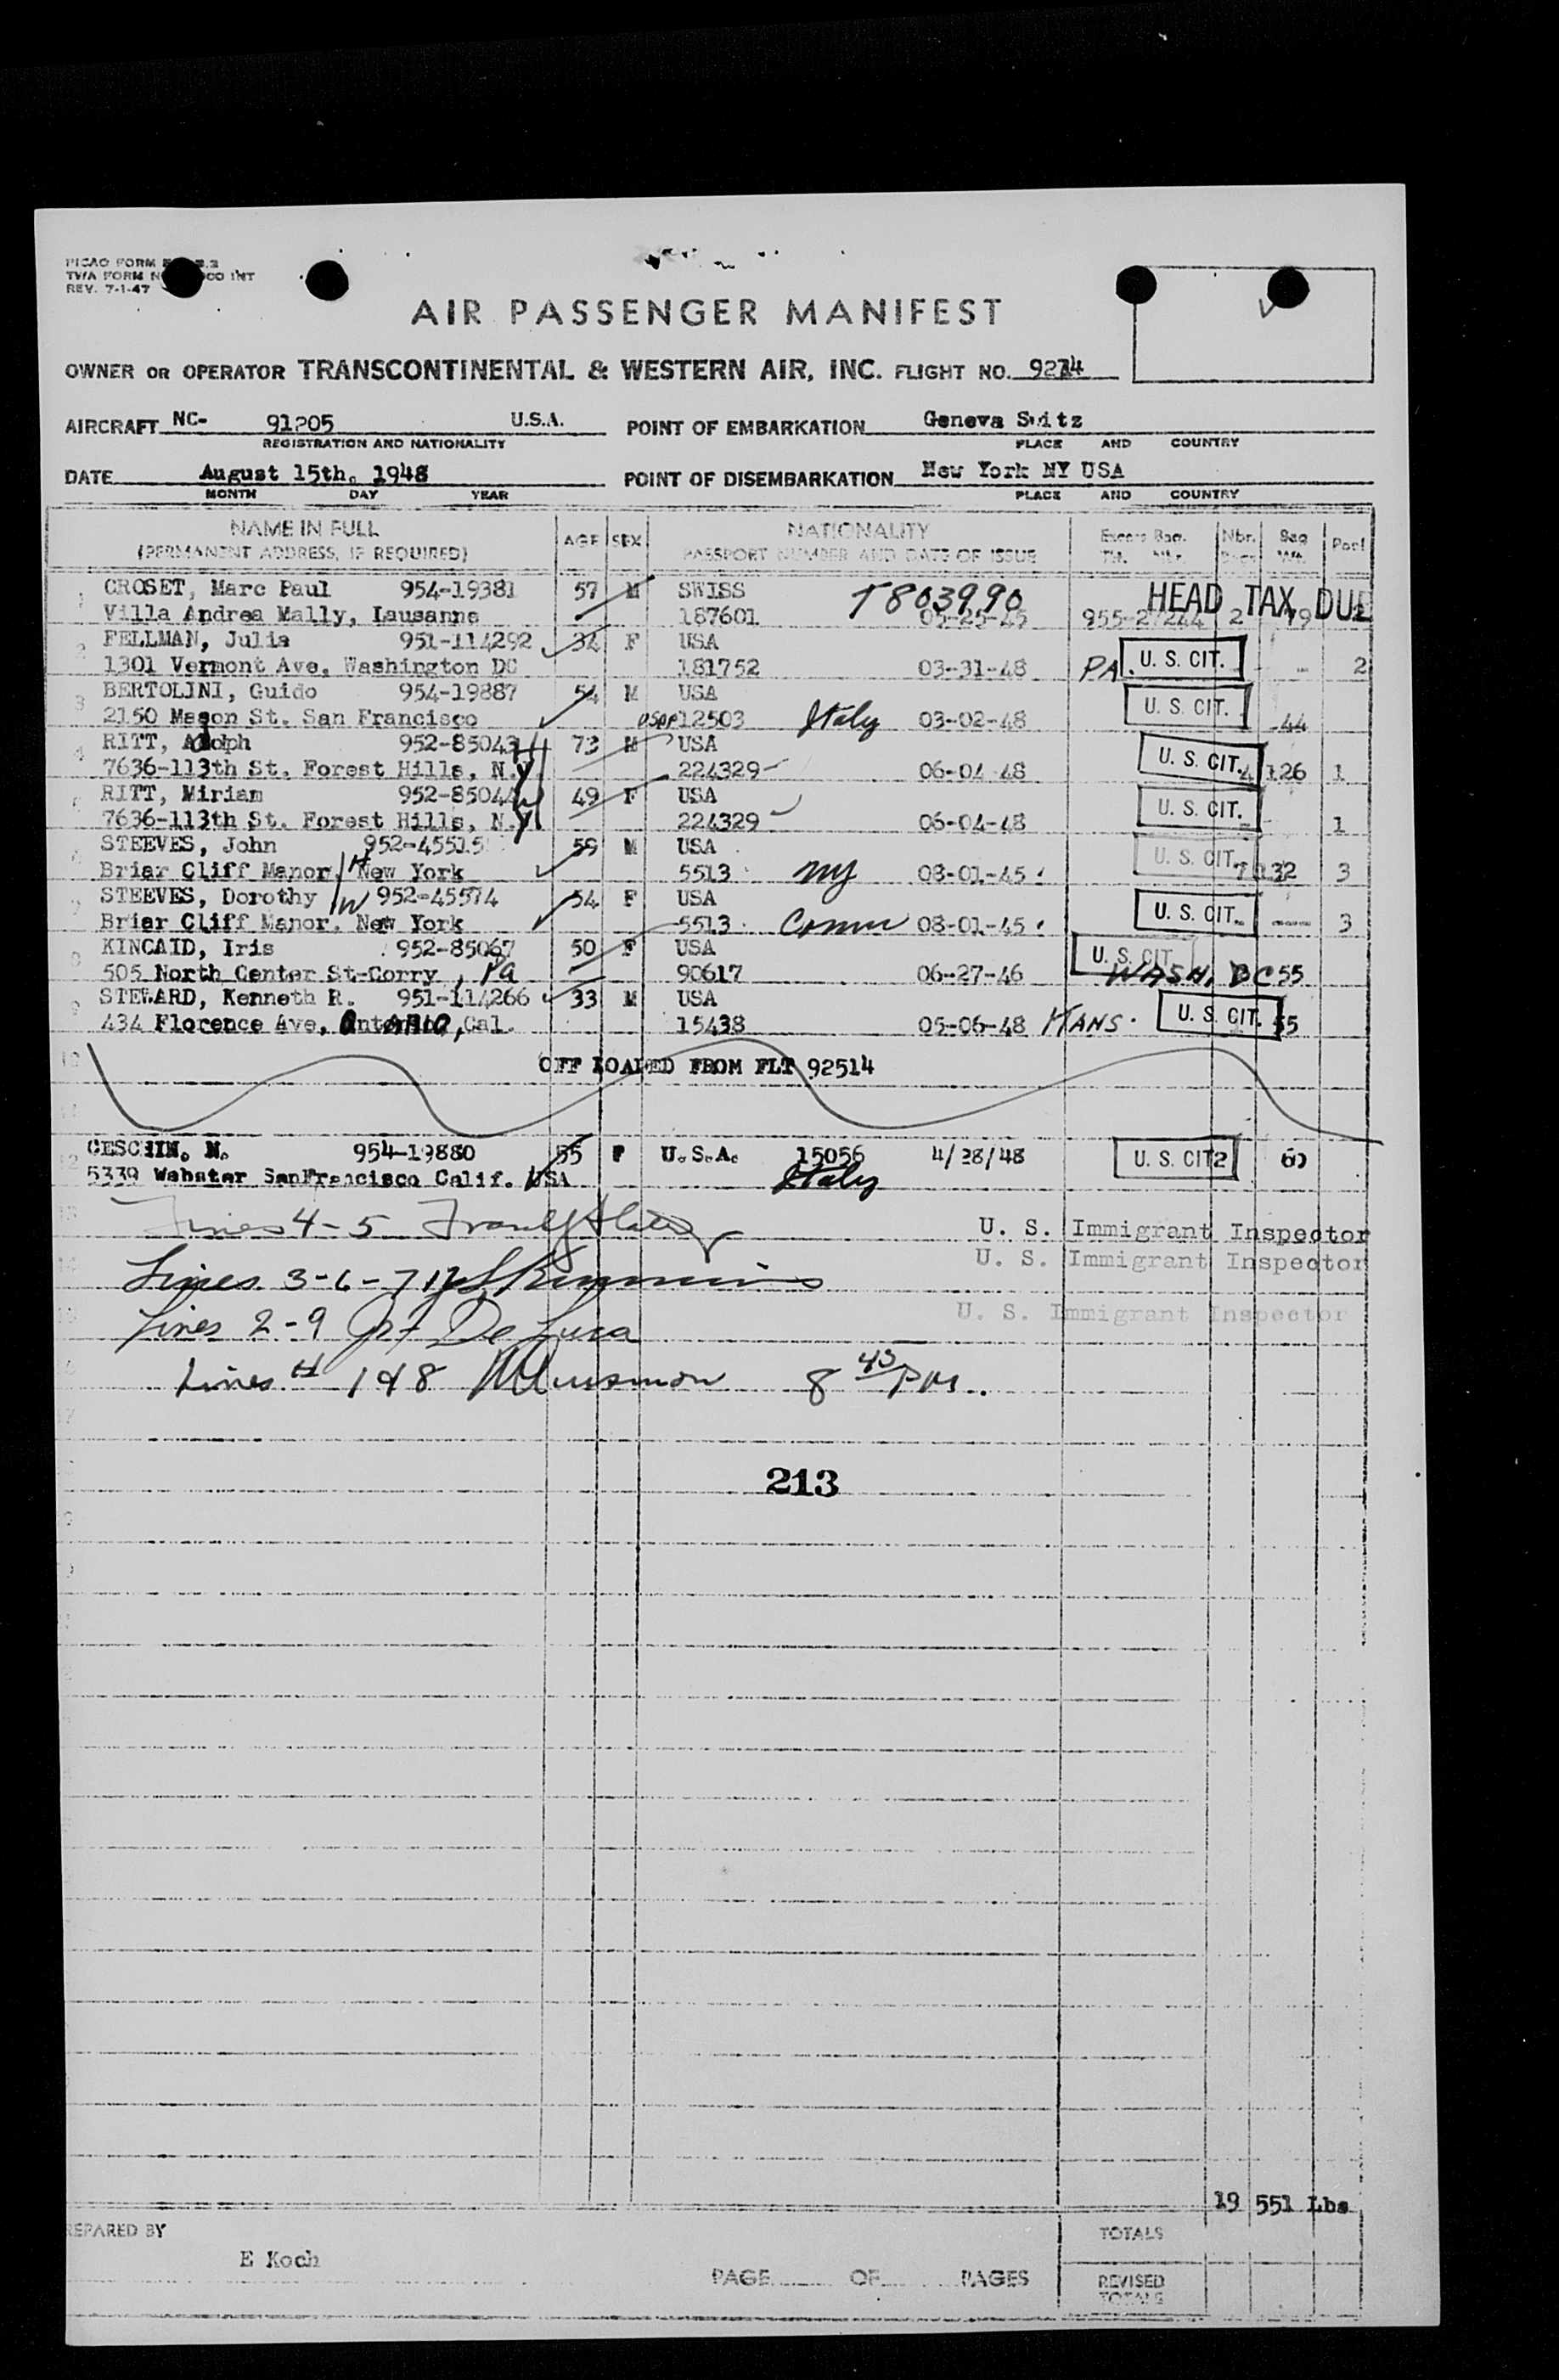 REV. 7-1-47
AIR PASSENGER MANIFEST
OWNER OR OPERATOR TRANSCONTINENTAL & WESTERN AIR, INC. FLIGHT NO.
AIRCRAFT NC- 91205 U.S.A. POINT OF EMBARKATION Geneva Switz
REGISTRATION AND NATIONALITY PLACE AND COUNTRY
DATE August 15th. 1948 POINT OF DISEMBARKATION New York NY USA
MONTH DAY YEAR PLACE AND COUNTRY
NAME IN FULL AGE SEX NATIONALITY Excess Bag. Nbr. Bag
(PERMANENT ADDRESS, IF REQUIRED) PASSPORT NUMBER AND DATE OF ISSUE Wt.
1 CROSET, Marc Paul 954-19381 57 M SWISS T803990 HEAD TAX DUE
Villa Andrea Mally, Lausanne 187601 05-25-45 2 79
2 FELLMAN, Julia 951-114292 34 F USA U. S. CIT.
1301 Vermont Ave, Washington DC 181752 03-31-48 PA. 2
3 BERTOLINI, Guido 954-19887 54 M USA U. S. CIT.
2150 Mason St. San Francisco 12503 Italy 03-02-48 44
4 RITT, Adolph 952-85043 H 73 M USA U. S. CIT.
7636-113th St. Forest Hills, N.Y 224329 06-04-48 4 126 1
5 RITT, Miriam 952-85044 W 49 F USA U. S. CIT.
7636-113th St. Forest Hills, N.Y 224329 06-04-48 1
6 STEEVES, John 952-45515 59 M USA U. S. CIT.
Briar Cliff Manor, H New York 5513 NY 08-01-45 7 132 3
7 STEEVES, Dorothy W 952-45574 54 F USA U. S. CIT.
Briar Cliff Manor. New York 5513 Conn 08-01-45 3
8 KINCAID, Iris 952-85067 50 F USA U. S. CIT.
505 North Center St-Corry, Pa 90617 06-27-46 WASH, DC 55
9 STEWARD, Kenneth R. 951-114266 33 M USA U. S. CIT.
434 Florence Ave, Ontario, Cal. 15438 05-06-48 KANS. 55
OFF LOADED FROM FLT 92514
12 CESCHIN. M. 954-19880 55 F U.S.A. 15056 4/28/48 U. S. CIT 2 60
5339 Webster SanFrancisco Calif. USA Italy
Lines 4-5 U. S. Immigrant Inspector
Lines 3-6-7 U. S. Immigrant Inspector
Lines 2-9 De Luca U. S. Immigrant Inspector
Lines 1 & 8 8 45 PM.
213
19 551 Lbs
PREPARED BY TOTALS
E Koch
PAGE OF PAGES REVISED
TOTALS